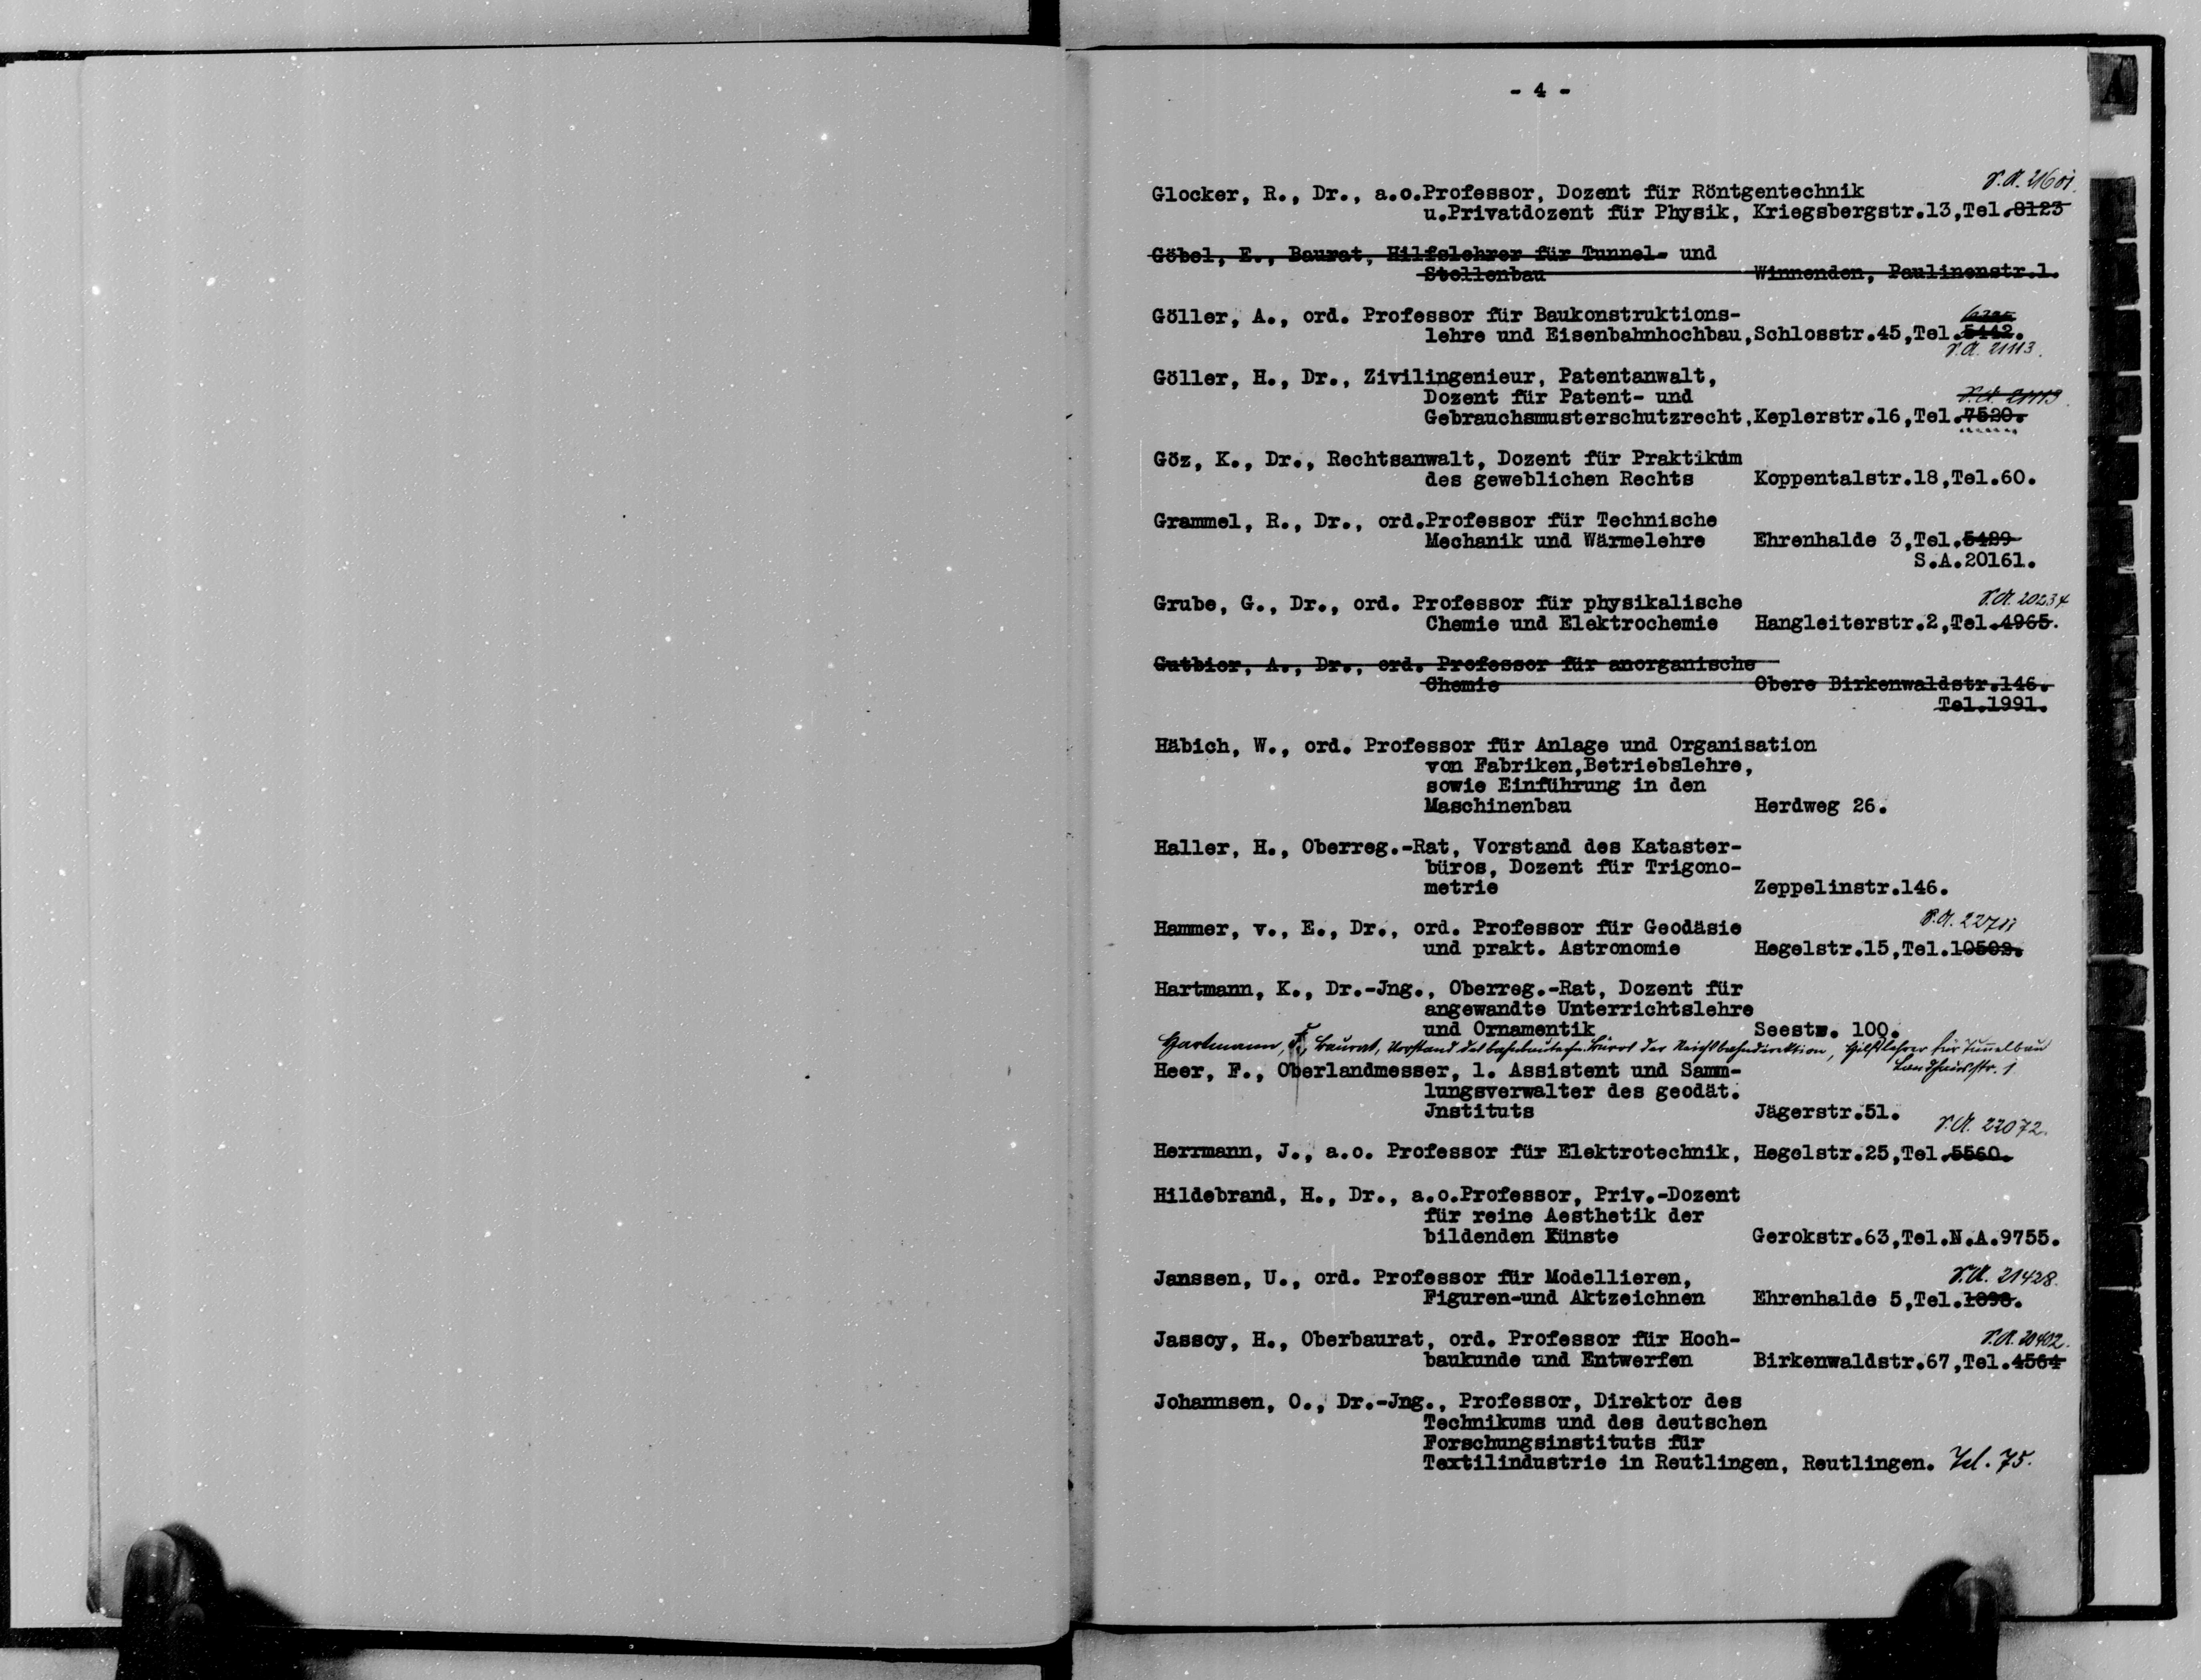 - 4 -
S.A. 21601.
Glocker, R., Dr., a.o.Professor, Dozent für Röntgentechnik
u.Privatdozent für Physik, Kriegsbergstr.13,Tel.8123
Göbel, E., Baurat, Hilfslehrer für Tunnel- und
Stollenbau Winnenden, Paulinenstr.1.
Göller, A., ord. Professor für Baukonstruktions-
lehre und Eisenbahnhochbau,Schlosstr.45,Tel.5442.
S.A. 21113.
Göller, H., Dr., Zivilingenieur, Patentanwalt,
Dozent für Patent- und S.A. 21113.
Gebrauchsmusterschutzrecht,Keplerstr.16,Tel.7520.
Göz, K., Dr., Rechtsanwalt, Dozent für Praktikum
des geweblichen Rechts Koppentalstr.18,Tel.60.
Grammel, R., Dr., ord.Professor für Technische
Mechanik und Wärmelehre Ehrenhalde 3,Tel.5489
S.A.20161.
Grube, G., Dr., ord. Professor für physikalische S.A. 20234
Chemie und Elektrochemie Hangleiterstr.2,Tel.4965.
Gutbier, A., Dr., ord. Professor für anorganische
Chemie Obere Birkenwaldstr.146.
Tel.1991.
Häbich, W., ord. Professor für Anlage und Organisation
von Fabriken,Betriebslehre,
sowie Einführung in den
Maschinenbau Herdweg 26.
Haller, H., Oberreg.-Rat, Vorstand des Kataster-
büros, Dozent für Trigono-
metrie Zeppelinstr.146.
Hammer, v., E., Dr., ord. Professor für Geodäsie S.A.
und prakt. Astronomie Hegelstr.15,Tel.10502.
Hartmann, K., Dr.-Jng., Oberreg.-Rat, Dozent für
angewandte Unterrichtslehre
und Ornamentik Seestr. 100.
Hartmann, F., Baurat, Vorstand des bahnbautechn. Büros der Reichsbahndirektion, Hilfslehrer für Tunnelbau
Landhausstr. 1
Heer, F., Oberlandmesser, 1. Assistent und Samm-
lungsverwalter des geodät.
Jnstituts Jägerstr.51.
S.A. 22072.
Herrmann, J., a.o. Professor für Elektrotechnik, Hegelstr.25,Tel.5560.
Hildebrand, H., Dr., a.o.Professor, Priv.-Dozent
für reine Aesthetik der
bildenden Künste Gerokstr.63,Tel.N.A.9755.
Janssen, U., ord. Professor für Modellieren, S.A. 21428.
Figuren-und Aktzeichnen Ehrenhalde 5,Tel.1898.
Jassoy, H., Oberbaurat, ord. Professor für Hoch- S.A. 20402.
baukunde und Entwerfen Birkenwaldstr.67,Tel.4564
Johannsen, O., Dr.-Jng., Professor, Direktor des
Technikums und des deutschen
Forschungsinstituts für
Textilindustrie in Reutlingen, Reutlingen. Tel. 75.